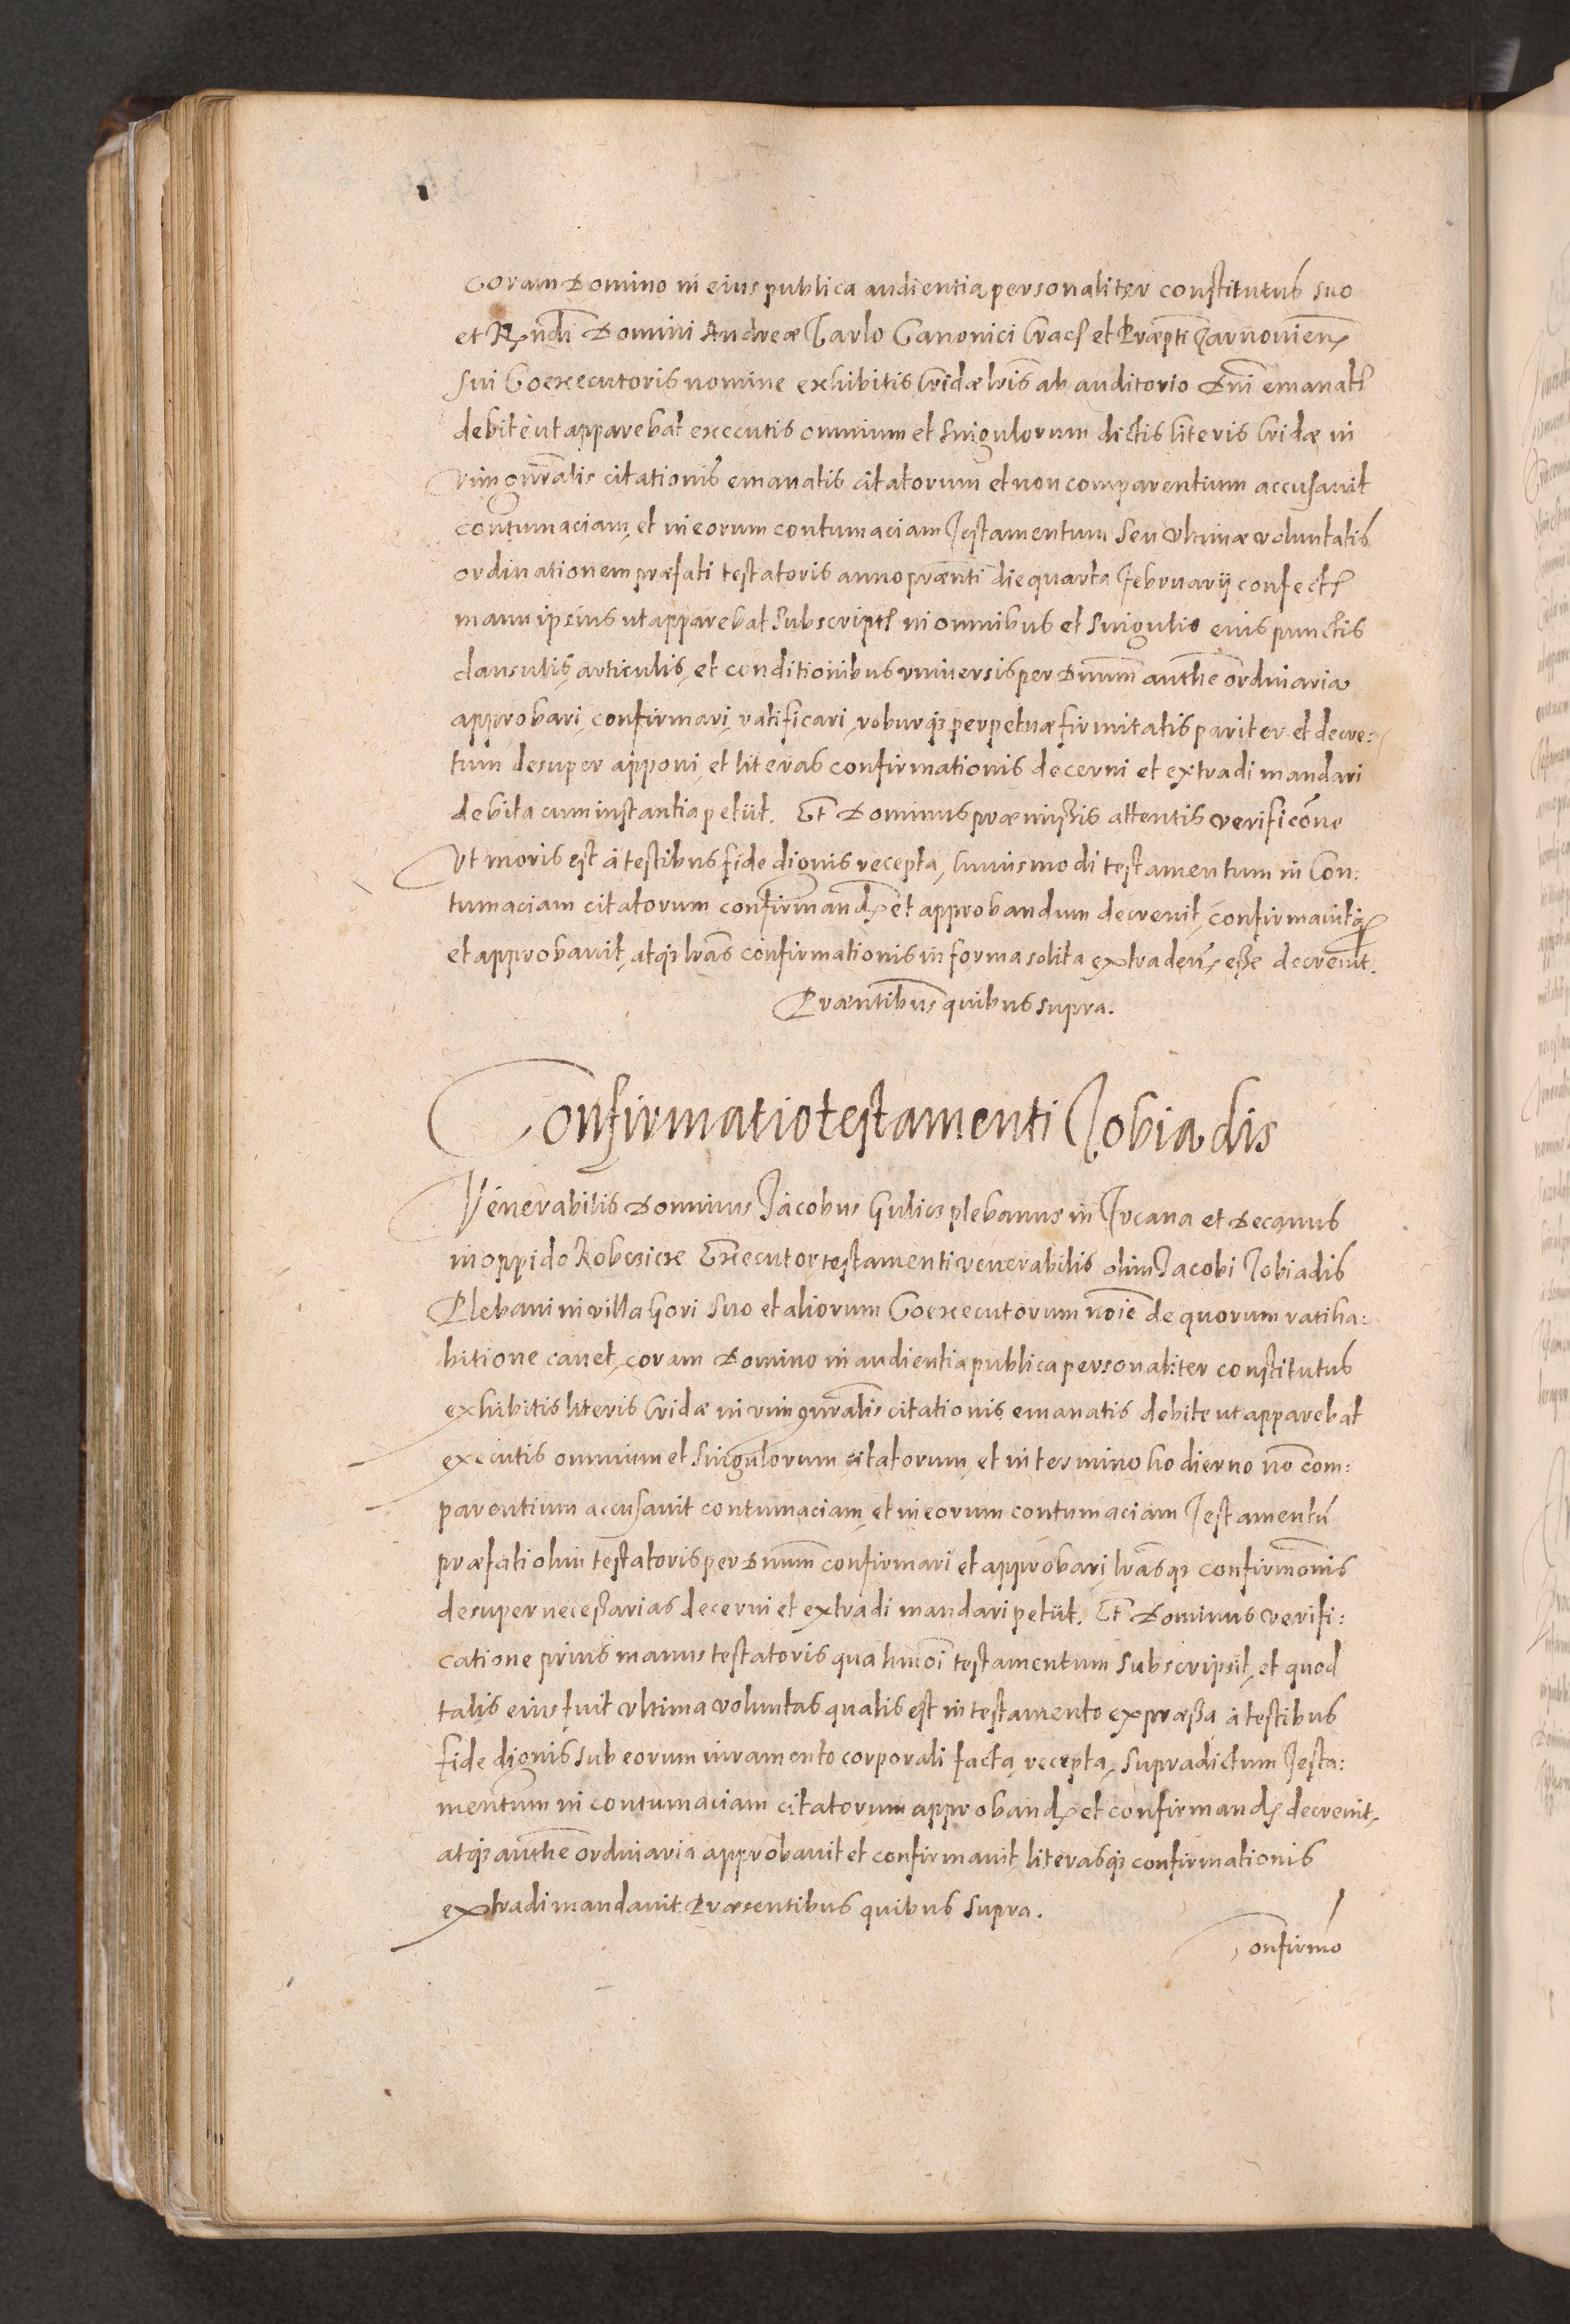 Coram Domino in eius publica audientia personaliter constitutus suo
et Rndi Domini Andreæ Tarlo Canonici Crac et Præpti Tarnovien
sui Coexecutoris nomine exhibitis Cridæ lris ab auditorio Dni emanat
debite ut apparebat executis omnium et singulorum dictis literis Cridæ in
vim gnralis citationis emanatis citatorum et non comparentium accusavit
contumaciam, et in eorum contumaciam Testamentum seu ultimæ voluntatis
ordinationem præfati testatoris anno prænti die quarta Februarij confect
manu ipsius ut apparebat subscript in omnibus et singulis eius punctis
clausulis, articulis, et conditionibus universis per Dnum authe ordinaria
approbari, confirmari, ratificari, roburq perpetuæ firmitatis pariter et decre:
tum desuper apponi, et literas confirmationis decerni et extradi mandari
debita cum instantia petiit. Et Dominus præmissis attentis verificone
Ut moris est à testibus fide dignis recepta, huiusmodi testamentum in Con:
tumaciam citatorum confirmand et approbandum decrevit, confirmavitq
et approbavit, atq lras confirmationis in forma solita extraden esse decrevit.
Præntibus quibus supra.
Confirmatio testamenti Tobiadis
Venerabilis Dominus Jacobus Gulicz plebanus in Trcana et Decanus
in oppido Kobesicze Executor testamenti venerabilis olim Jacobi Tobiadis
Plebani in villa Gori suo et aliorum Coexecutorum noie de quorum ratiha:
bitione cavet, coram Domino in audientia publica personaliter constitutus
exhibitis literis Cridæ in vim gnralis citationis emanatis debite ut apparebat
executis omnium et singulorum citatorum, et in termino hodierno no com:
parentium accusavit contumaciam, et in eorum contumaciam Testamentu
præfati olim testatoris per Dnum confirmari et approbari, lrasq confirmonis
desuper necessarias decerni et extradi mandari petiit. Et Dominus verifi:
catione prius manus testatoris qua humoi testamentum subscripsit, et quod
talis eius fuit ultima voluntas qualis est in testamento expræssa à testibus
fide dignis sub eorum iuramento corporali facta, recepta, supradictum Testa:
mentum in contumaciam citatorum approband et confirmand decrevit,
atq authe ordinaria approbavit et confirmavit literasq confirmationis
extradi mandavit Præsentibus quibus supra.
Confirmo